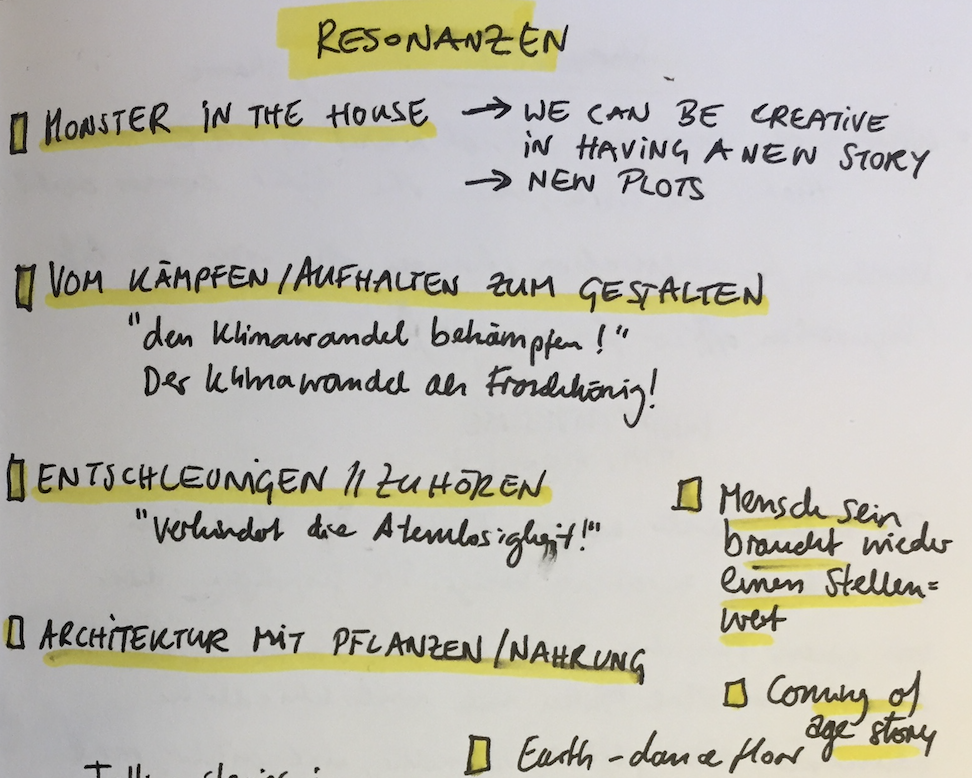 RESONANZEN
MONSTER IN THE HOUSE → WE CAN BE CREATIVE
IN HAVING A NEW STORY
→ NEW PLOTS
VOM KÄMPFEN/AUFHALTEN ZUM GESTALTEN
"den Klimawandel bekämpfen!"
Der Klimawandel als Froschkönig!
ENTSCHLEUNIGEN // ZUHÖREN
"Verhindert die Atemlosigkeit!"
Mensch sein
braucht wieder
einen Stellen=
wert
ARCHITEKTUR MIT PFLANZEN/NAHRUNG
Coming of
age story
Earth-dance floor